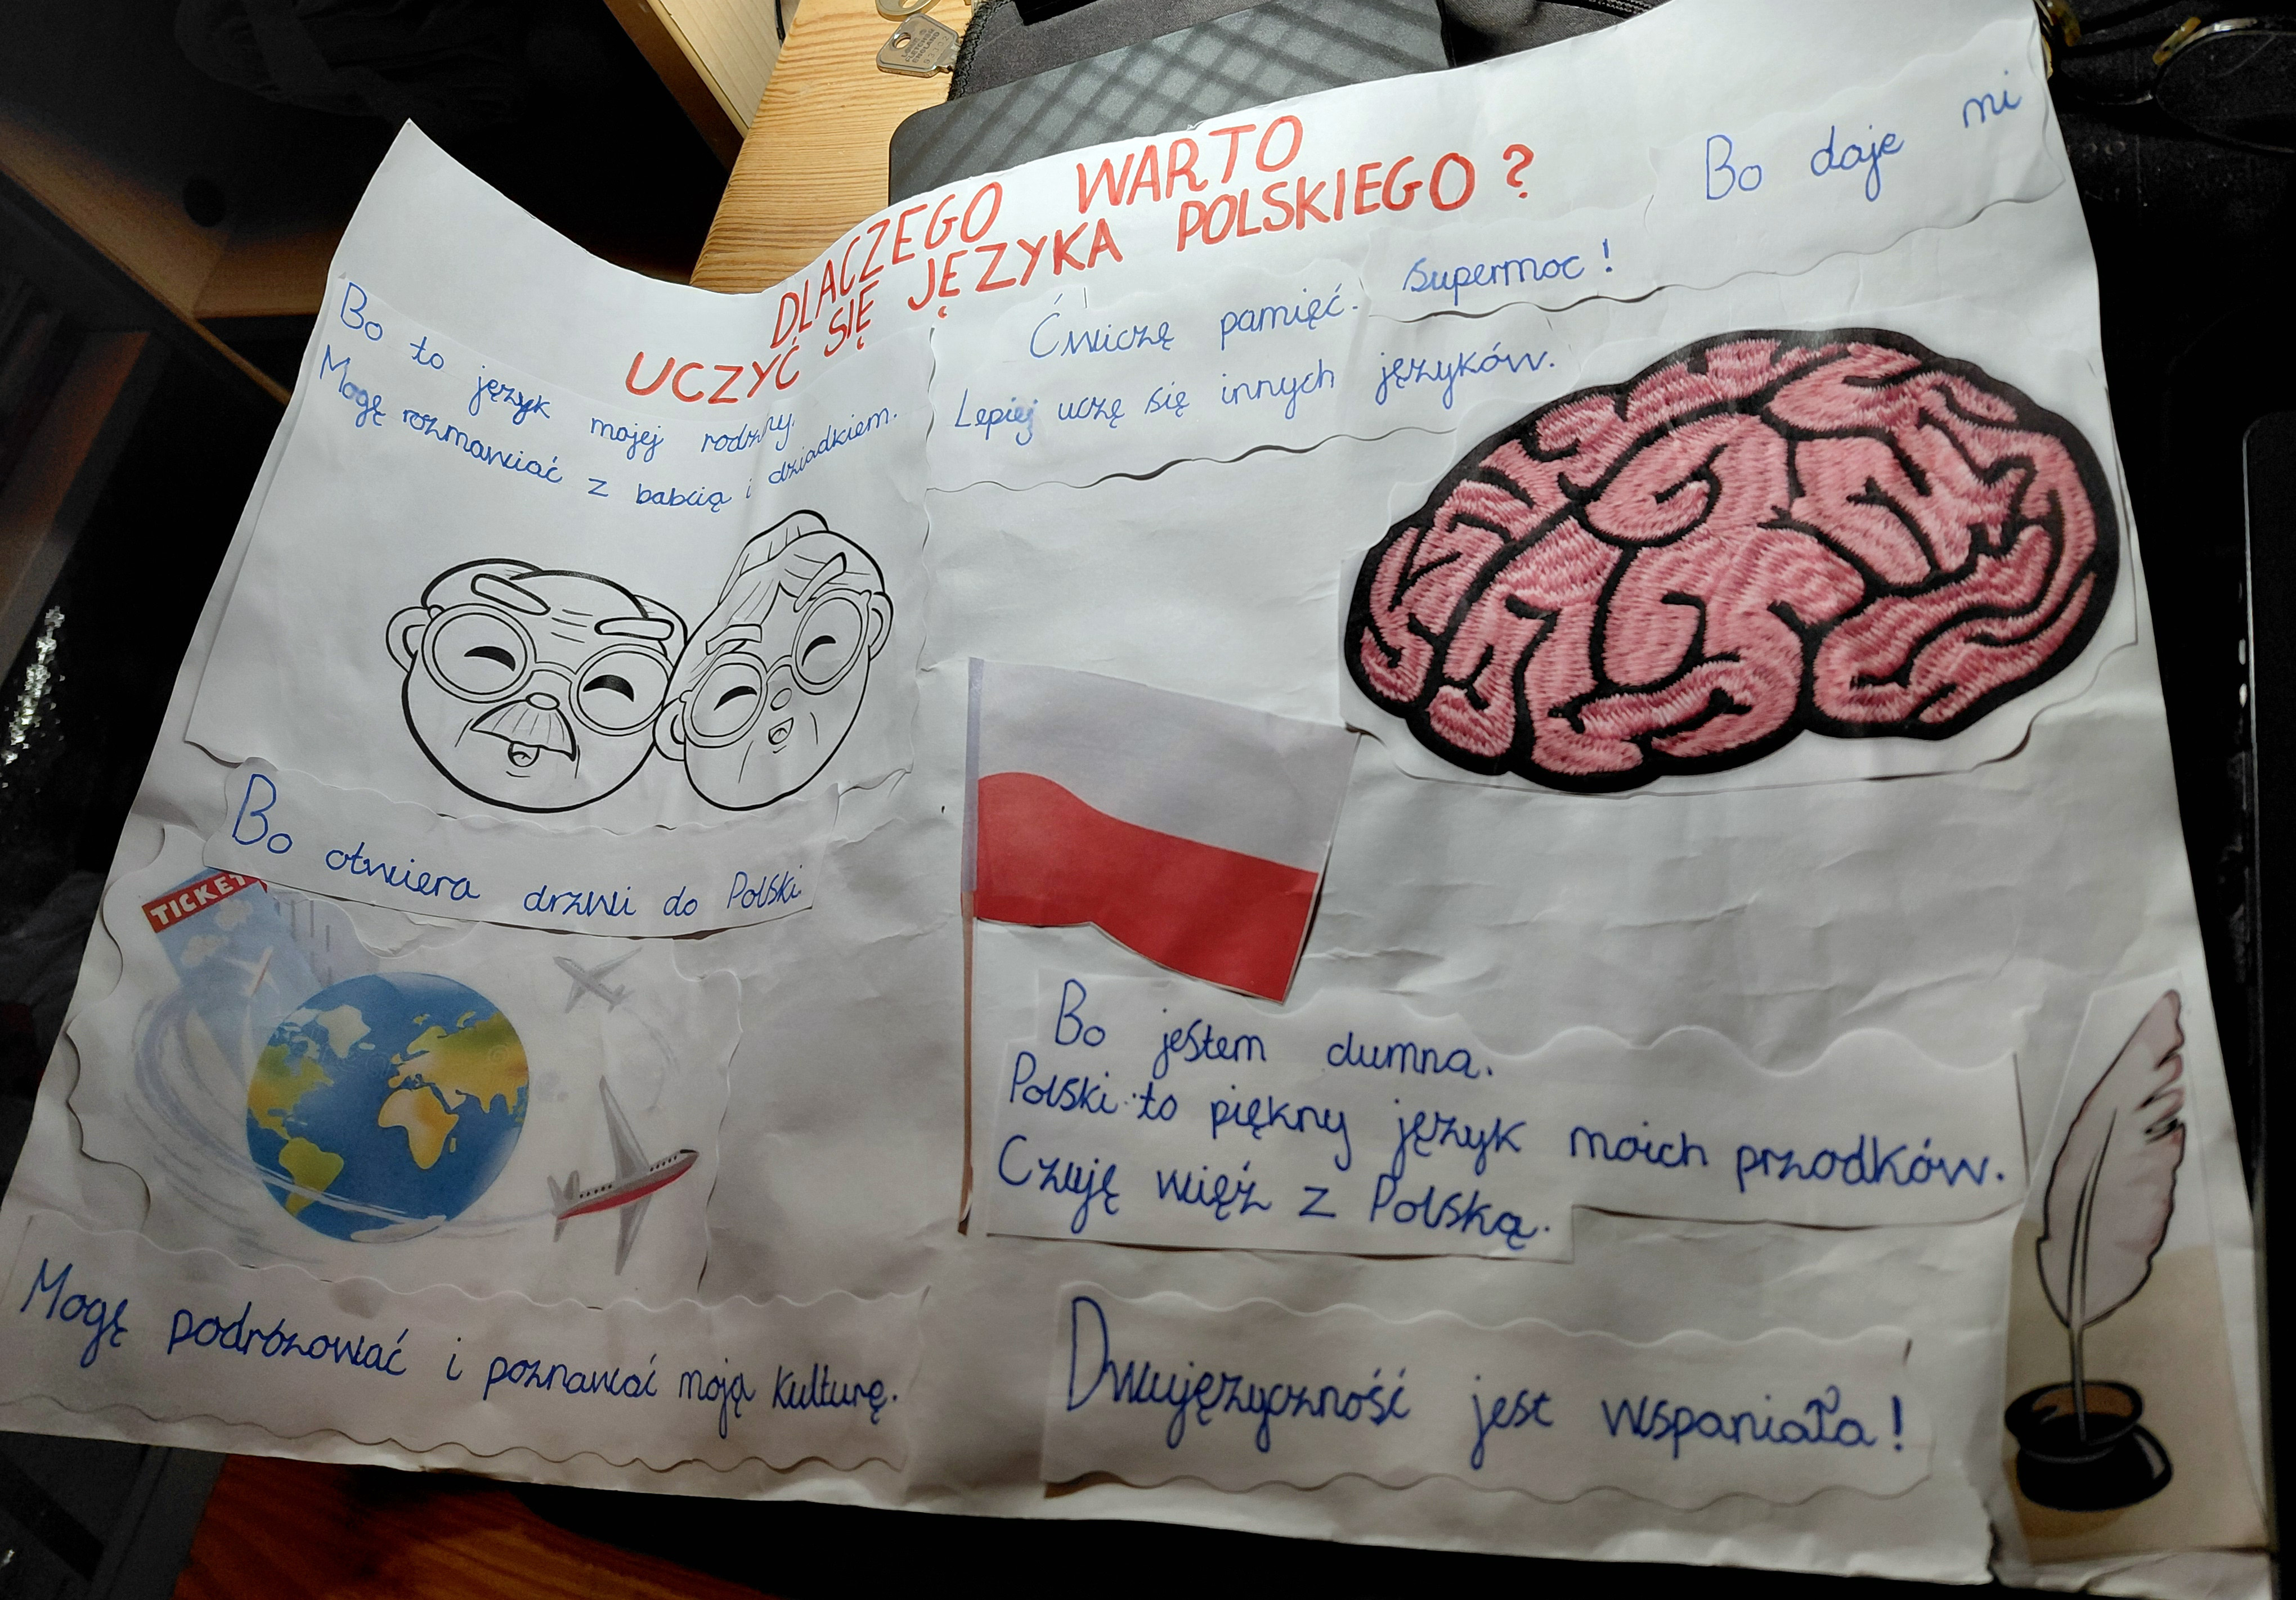 DLACZEGO WARTO
UCZYĆ SIĘ JĘZYKA POLSKIEGO?
Bo to język mojej rodziny.
Mogę rozmawiać z babcią i dziadkiem.
Bo daje mi
supermoc!
Ćwiczę pamięć.
Lepiej uczę się innych języków.
Bo otwiera drzwi do Polski
TICKET
Mogę podrózować i poznawać moją kulturę.
Bo jestem dumna.
Polski to piękny język moich przodków.
Czuję więź z Polską.
Dwujęzyczność jest wspaniała!